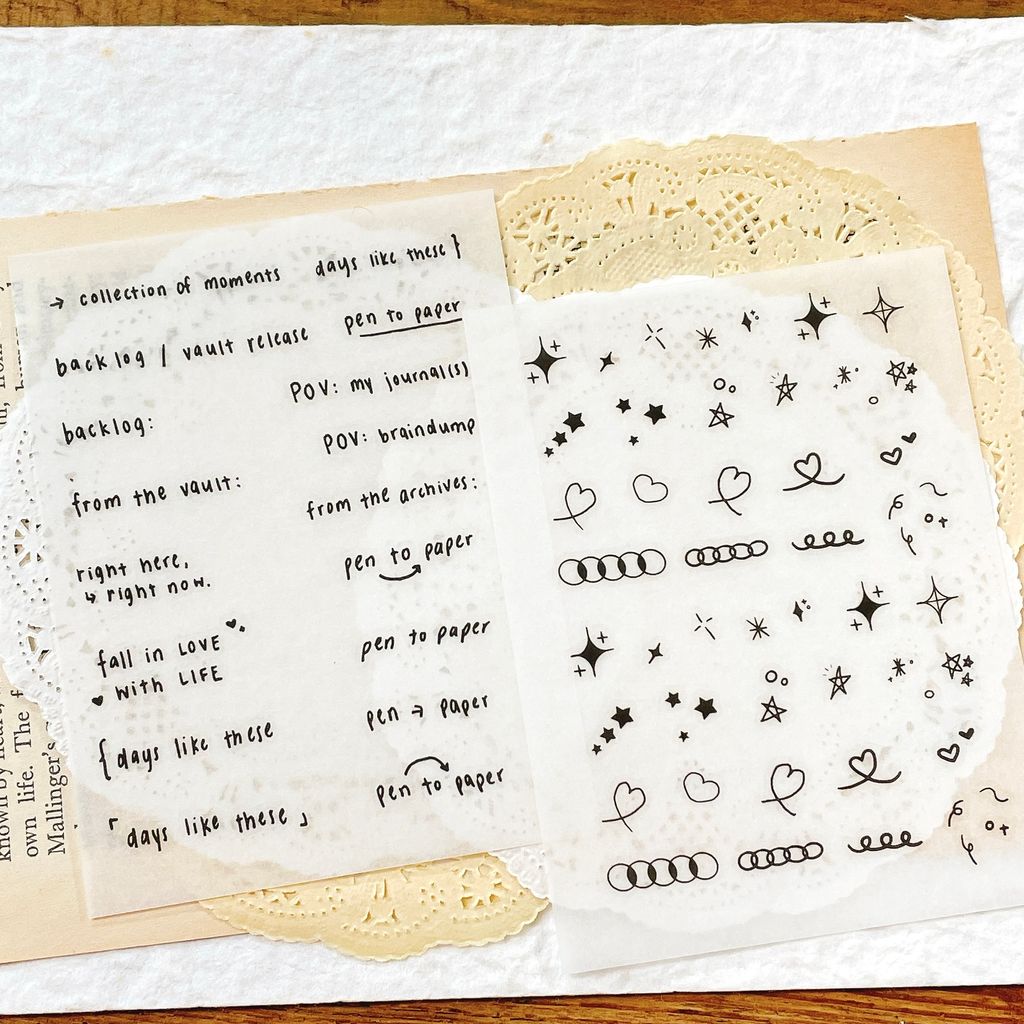 → collection of moments
days like these }
backlog / vault release
pen to paper
POV: my journal(s)
backlog:
POV: braindump
from the vault:
from the archives:
right here,
↳ right now.
pen to paper
fall in LOVE
♥ with LIFE
pen to paper
{ days like these
pen → paper
「 days like these 」
pen to paper
known by heart,
own life. The f
Mallinger's